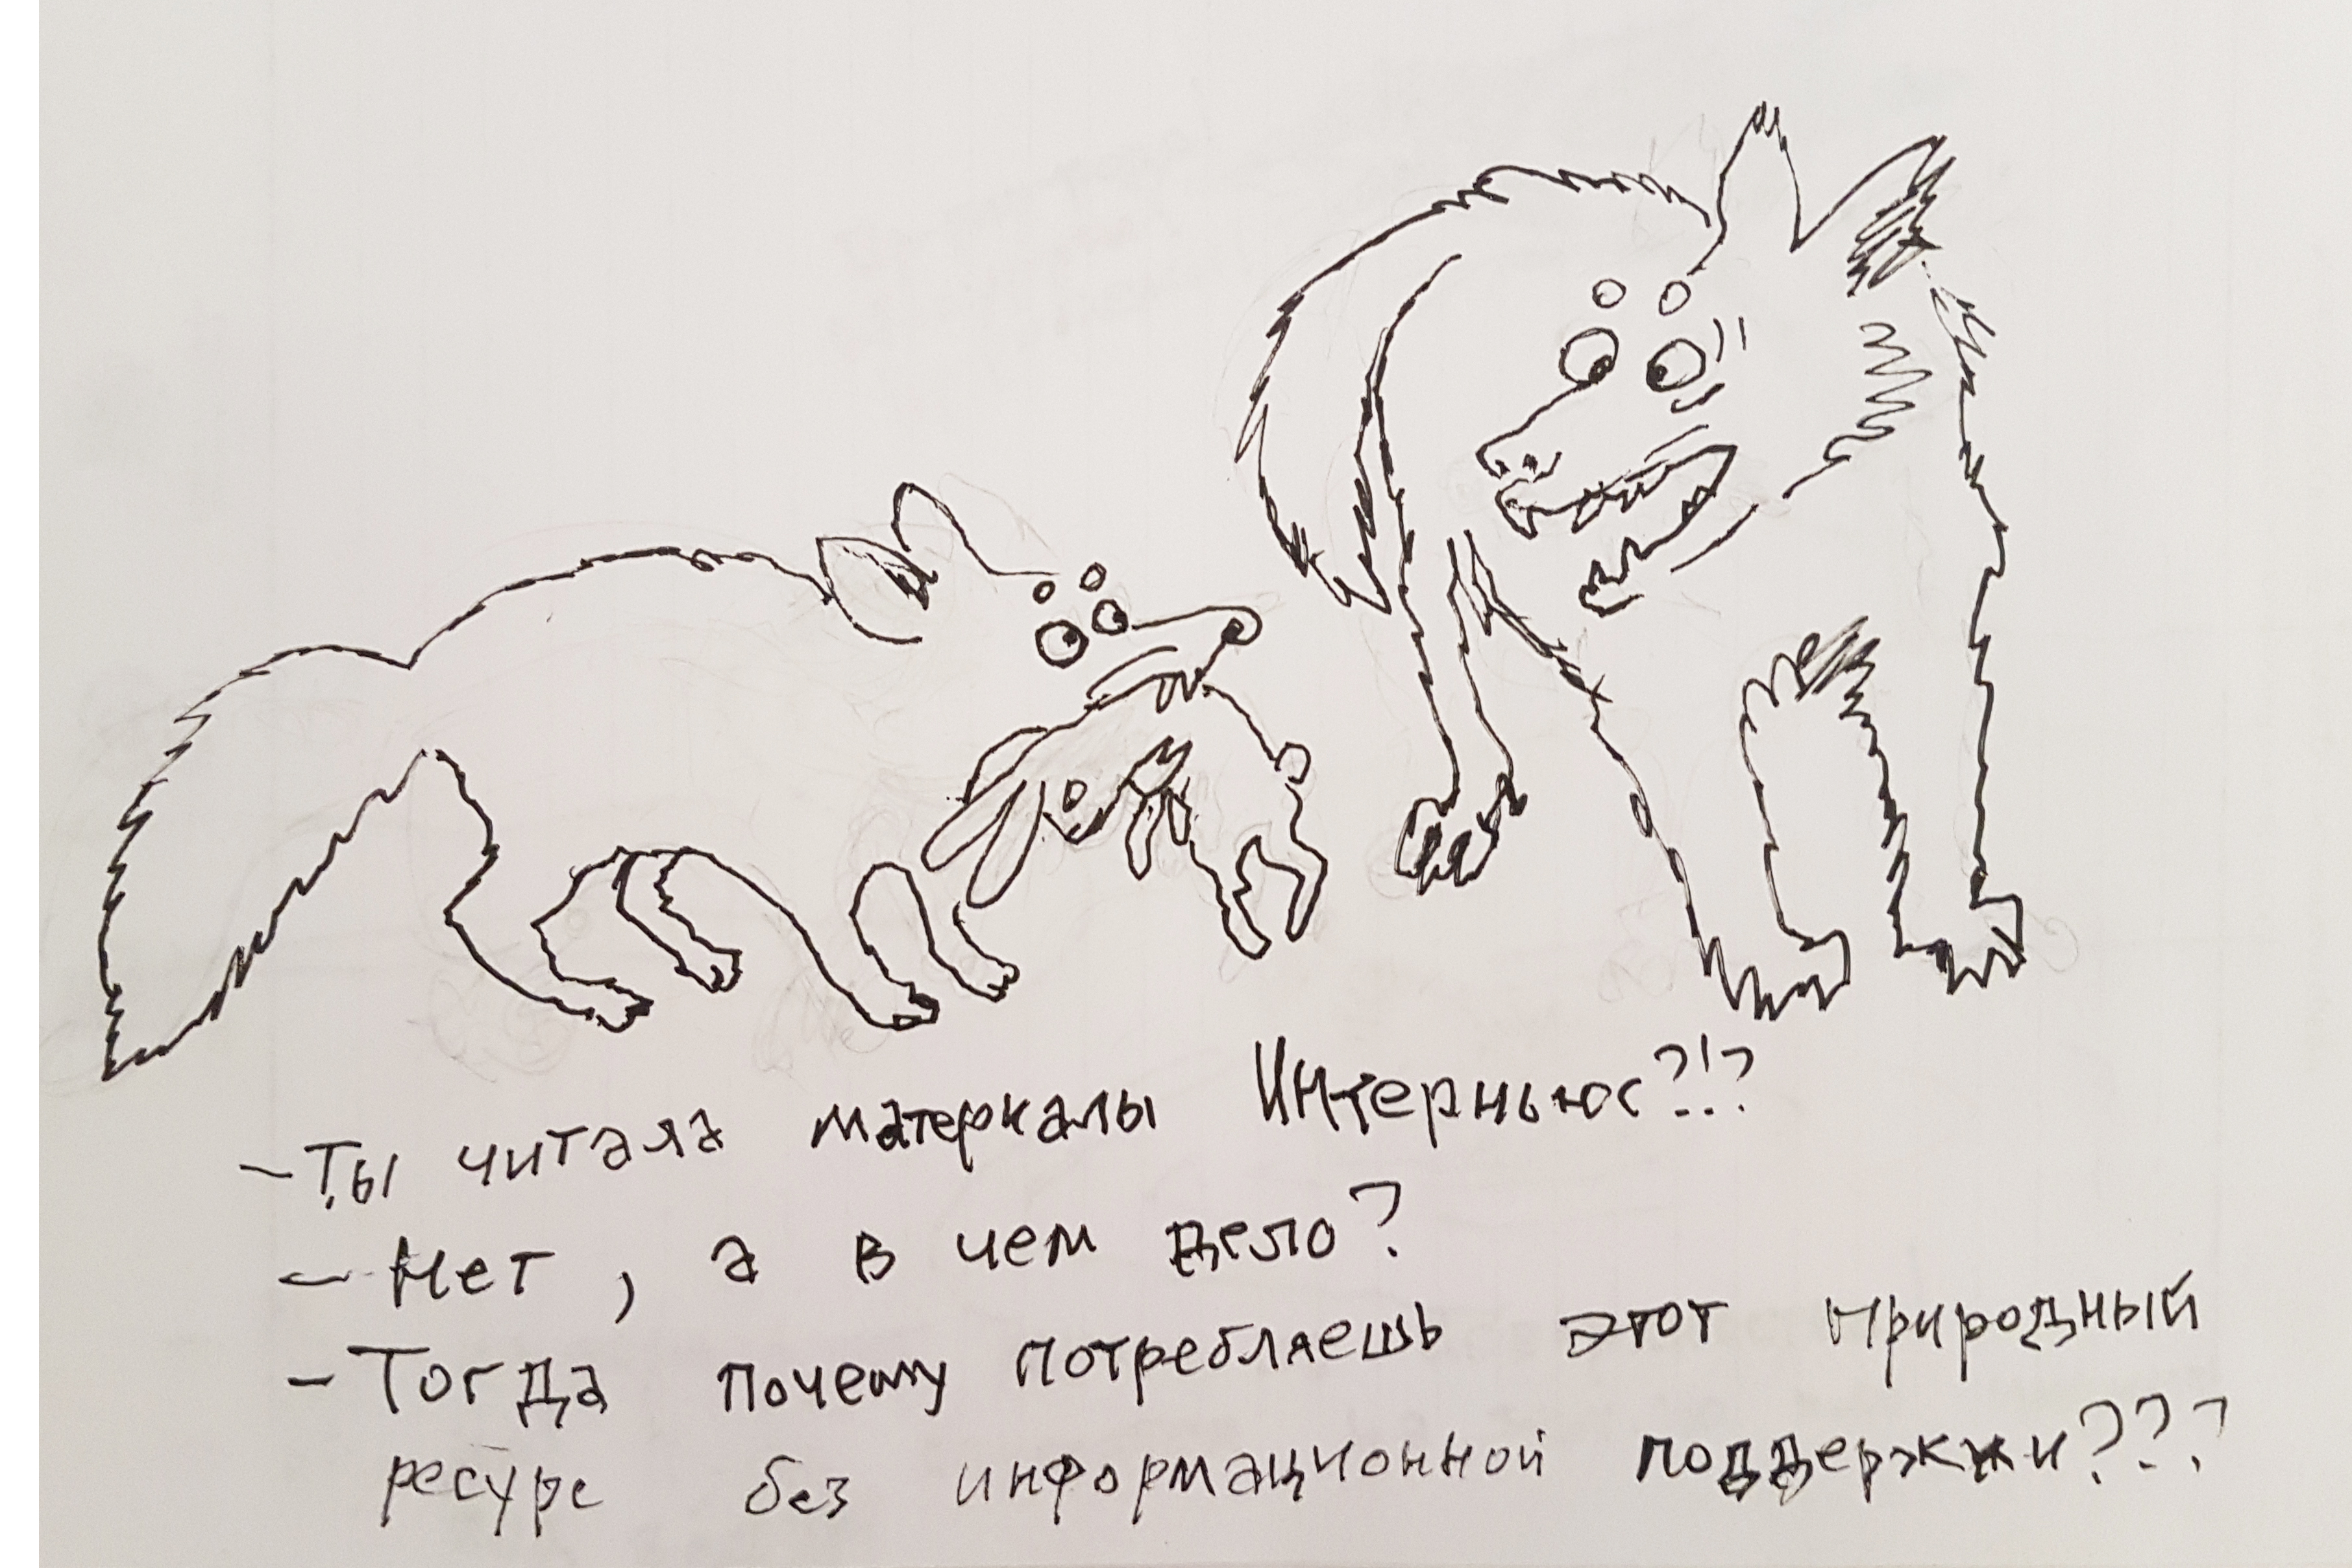 - Ты читала материалы Интерньюс?!?
- Нет, а в чем дело?
- Тогда почему потребляешь этот природный
ресурс без информационной поддержки???